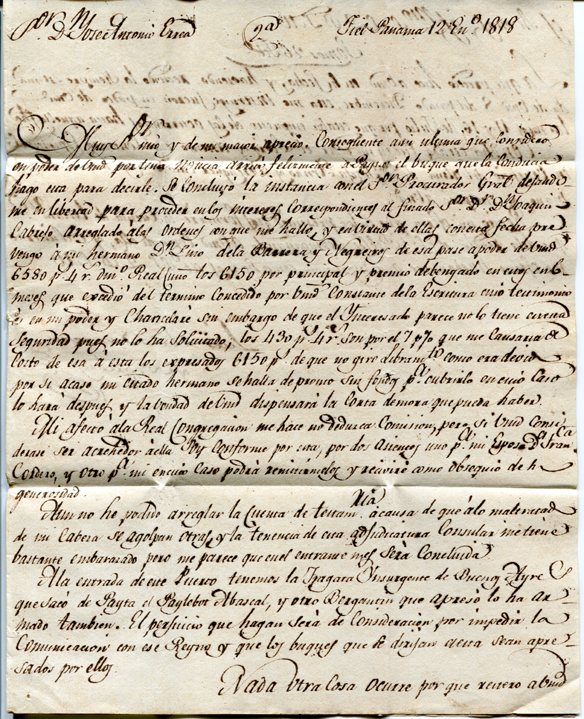 Sor. D.n Jose Antonio Errea 2.a Feb Panama 12 En.o 1818
Muy S.or mio y de mi maior aprecio. Consiguiente a mi ultima que considero
en poder de Vmd por tener Noticia arrivó felizmente a Payta el buque que la conducia
hago esta para decirle. Se concluyó la instancia con el S.or Procurador Gral dejando
me en libertad para proceder en los intereses Correspondientes al finado S.or D.r D.n Joaquin
Cabrejo arreglado a las ordenes con que me hallo, y en virtud de ellas con esta fecha pre
vengo á mi hermano D.n Lino de la Barrera y Negreiros de esa pase a poder de Vmd
6580 p.s 4 r.s los 6150 por principal y premio debengado en estos
meses que excedió del termino Concedido por Vmd Constante de la Escritura cuio testimonio
es en mi poder y Chancelaré sin embargo de que el Interesado parece no lo tiene
Seguridad pues no lo ha Solicitado, los 430 p.s 4 r.s Son por el 7 p% que me Causaria el
Costo de esa á esta los expresados 6150 p.s de que no giro libram.to como era devido
por si acaso mi citado hermano se halla de pronto sin fondos p.a cubrirlo en cuio Caso
lo hará despues y la bondad de Vmd dispensará la Corta demora que pueda haber.
Mi afecto a la Real Congregacion me hace no deduzca Comision, pero si Vmd Consi
derase ser acrehedor á ella Soy Conforme por esta, por dos Asientos uno p.a mi Esposa D.a Fran.ca
Cordero, y otro p.a mi en cuio Caso podrá remitirmelos y recivire como obsequio de
generosidad.
Aun no he podido arreglar la Cuenta de testam.ria á causa de que á lo maltratad
de mi Cabeza se agolpan otras, y la tenencia de esta adjudicatura Consular me tiene
bastante embarazado pero me parece que en el entrante mes Será Concluida
A la entrada de este Puerto tenemos la Fragata Insurgente de Buenos Ayres
que sacó de Payta el Paylebot Abascal, y otro Bergantin que apresó lo ha ar
mado tambien. El perjuicio que hagan sera de Consideracion por impedir la
Comunicacion con ese Reyno y que los buques que se dirijan a esta Sean apre
sados por ellos.
Nada Otra Cosa ocurre por que reitero a Vmd